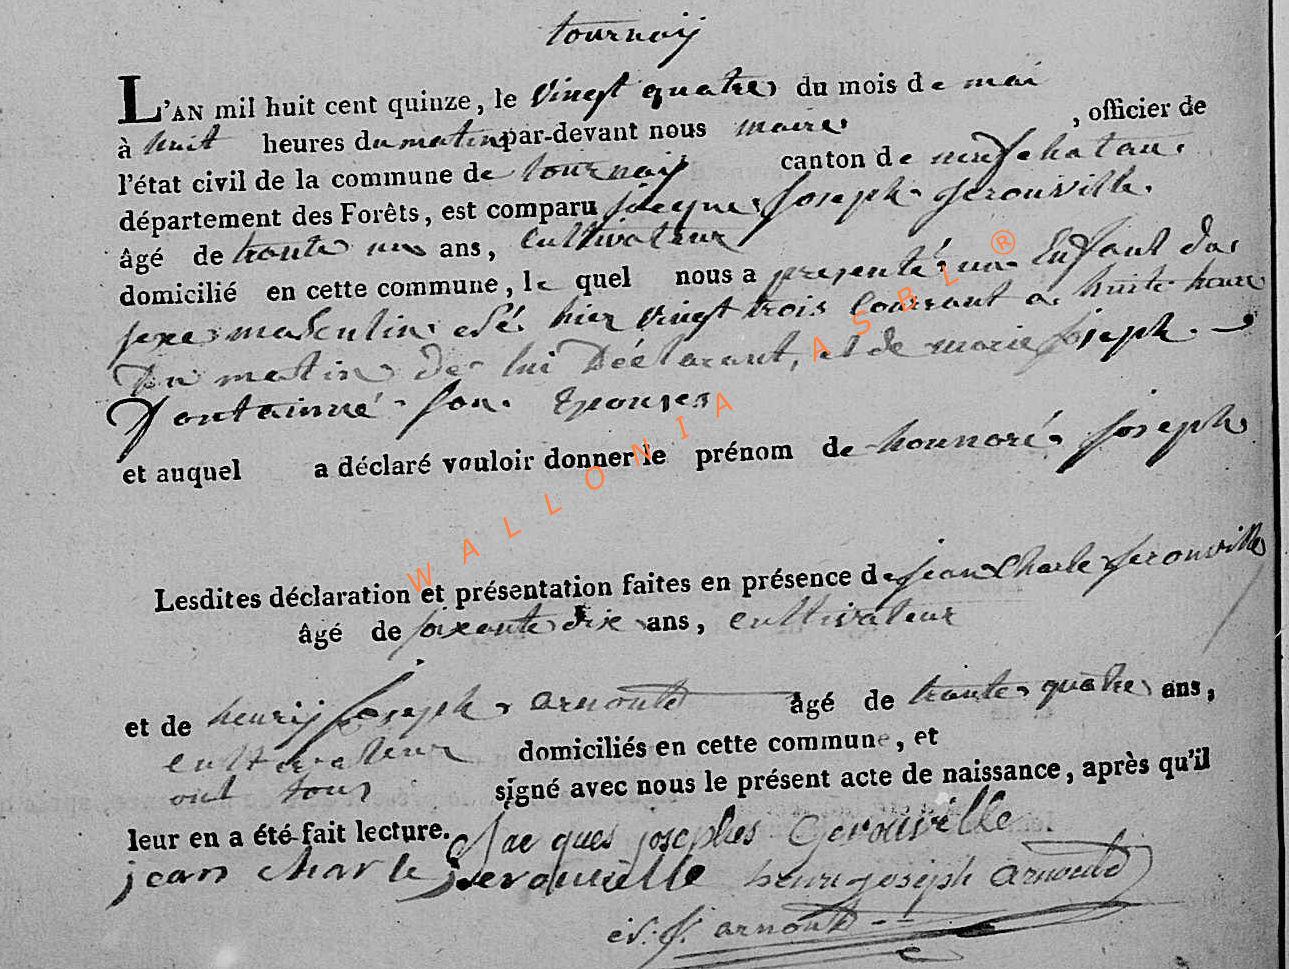 tournaij
L'AN mil huit cent quinze, le Vingt quatre du mois de mai
à huit heures du matin par-devant nous maire , officier de
l'état civil de la commune de tournaij canton de neufchatau
département des Forêts, est comparu jacque joseph Gerouville
âgé de trante un ans, Cultivateur
domicilié en cette commune, le quel nous a presenté un Enfant du
sexe masculin né hier vingt trois Courrant a huite heure
Du matin de lui Déclarant, et de marie joseph
fontainne son Epouse
et auquel a déclaré vouloir donner le prénom de hounoré joseph
Lesdites déclaration et présentation faites en présence de jean Charle Gerouville
âgé de soixante dix ans, cultivateur
et de henrij joseph arnould âgé de trante quatre ans,
cultivateur domiciliés en cette commune, et
ont tous signé avec nous le présent acte de naissance, après qu'il
leur en a été fait lecture. Jacques josephes Gerouville
jean charle gerouville henri joseph arnould
j. arnould
WALLONIA ASBL ®